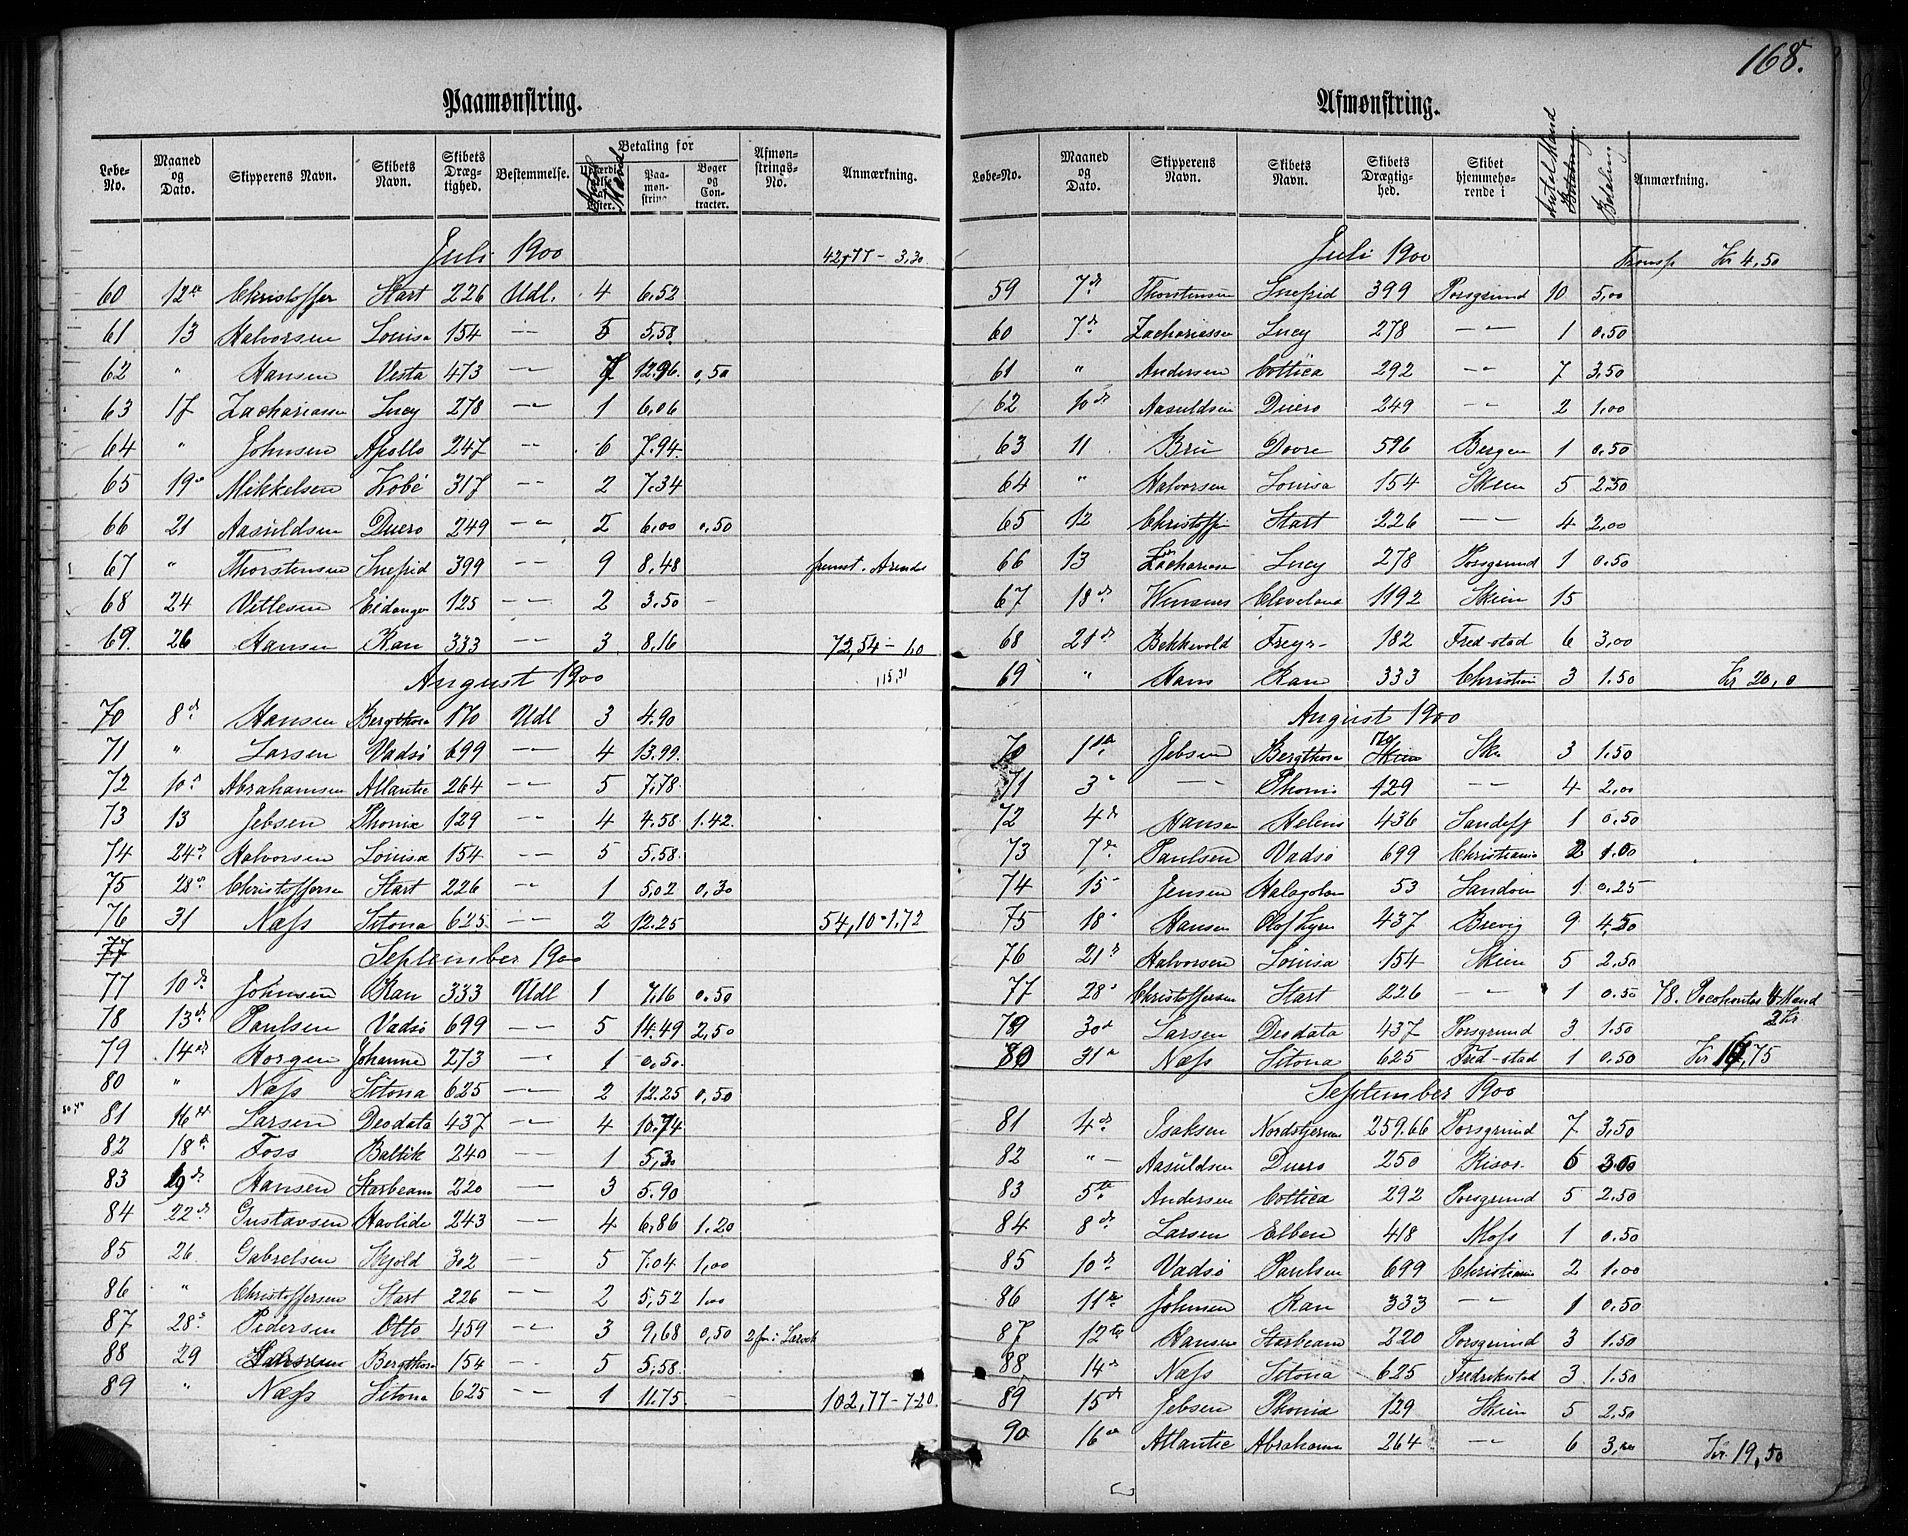 168.
Paamønstring.
Løbe-No. | Maaned og Dato. | Skipperens Navn. | Skibets Navn. | Skibets Drægtighed. | Bestemmelse. | Betaling for | Antal Mand | Paamønstring | Bøger og Contracter. | Afmønstrings-No. | Anmærkning.
Juli 1900 42,77 - 3,30
60 12te Christoffer Start 226 Udl. 4 6,52
61 13 Halvorsen Louisa 154 -"- 5 5,58
62 " Hansen Vesta 473 -"- 7 12.96. 0,50
63 17 Zachariassen Lucy 278 -"- 1 6,06
64 " Johnsen Apollo 247 -"- 6 7.94
65 19 Mikkelsen Kobé 317 -"- 2 7.34
66 21 Aasuldsen Duero 249 -"- 2 6,00 0,50
67 " Thorstensen Snefrid 399 -"- 9 8,48
68 24 Vetlesen Eidanger 125 -"- 2 3.50 -
69. 26 Hansen Kan 333 -"- 3 8,16 72,54 - 1,0
August 1900 115,31
70 8d Hansen Bergthora 170 Udl 3 4.90
71 " Larsen Vadsø 699 -"- 4 13.99.
72 10d Abrahamsen Atlantic 264 -"- 5 7,78
73 13 Jebsen Phønix 129 -"- 4 4.58 1.42.
74 24d Halvorsen Louisa 154 -"- 5 5.58
75 28d Christoffersen Start 226 -"- 1 5,02 0,30
76 31 Næss Sitona 625 -"- 2 12.25 54,10 - 1,72
77
September 1900
77 10d Johnsen Kan 333 Udl 1 7,16 0,50
78 13d Paulsen Vadsø 699 -"- 5 14.49 2,50
79 14de Horgen Johanne 273 -"- 1 0,50
80 " Næss Sitona 625 -"- 2 12.25 0,50
81 16de Larsen Deodata 437 -"- 4 10.74
82 18de Foss Baltik 240 -"- 1 5,30
83 19d Hansen Starbeam 220 -"- 3 5.90
84 22d Gustavsen Havlide 243 -"- 4 6,86 1.20
85 26 Gabrelsen Skjold 302 -"- 5 7.04 1,00
86 " Christoffersen Start 226 -"- 2 5,52 1,00
87 28d Pedersen Otto 459 -"- 3 9,68 0,50
88 29 Bergthora 154 -"- 5 5.58
89 " Næss Sitona 625 -"- 1 11.75 - 102,77 - 7,20
Afmønstring.
Løbe-No. | Maaned og Dato. | Skipperens Navn. | Skibets Navn. | Skibets Drægtighed. | Skibet hjemmehørende i | Antal Mand | Betaling | Anmærkning.
Juli 1900 Transp Kr 4,50
59 7d Thorstensen Snefrid 399 Porsgrund 10 5,00
60 7d Zachariassen Lucy 278 -"- 1 0.50
61 " Andersen Cottica 292 -"- 7 3,50
62 10de Aasuldsen Duero 249 -"- 2 1.00
63 11 Bru Dovre 596 Bergen 1 0.50
64 " Halvorsen Louisa 154 Skien 5 2.50
65 12 Christoff Start 226 -"- 4 2,00
66 13 Zachariassen Lucy 278 Porsgrund 1 0.50
67 18d Cleveland 1192 Skien 15
68 21d Bekkevold Freyr 182 Fred-stad 6 3,00
69 " Hans Kan 333 Christian 3 1.50 Kr 20,0
August 1900
70 1te Jebsen Bergthora 170 Ski 3 1.50
71 3d -"- Phønix 129 -"- 4 2,00
72 4d Hansen Helens 436 Sandefj 1 0.50
73 7de Paulsen Vadsø 699 Christiania 2 1.00
74 15 Jensen 53 1 0.25
75 18 Hansen Olof Kyrre 437 Brevig 9 4,50
76 21d Halvorsen Louisa 154 Skien 5 2.50
77 28d Christoffersen Start 226 " 1 0.50 78. Pocohontas 4 Mand 2 Kr
79 30d Larsen Deodata 437 Porsgrund 3 1.50
80 31d Næss Sitona 625 Fred-stad 1 0.50 Kr 17,75
September 1900
81 4d Isaksen Nordstjernen 259.66 Porsgrund 7 3,50
82 " Aasuldsen Duero 250 Risør 6 3.00
83 5te Andersen Cottica 292 Porsgrund 5 2.50
84 8d Larsen Elben 418 Moss 1 0.50
85 10d Vadsø Paulsen 699 Christiania 2 1.00
86 11te Johnsen Kan 333 -"- 1 0.50
87 12te Hansen Starbeam 220 Porsgrund 3 1.50
88 14d Næss Sitona 625 Fredrikstad 3 1.50
89 15d Jebsen Phønix 129 Skien 5 2,50
90 16de Atlantic Abrahams 264 -"- 6 3,00 Kr. 19,50